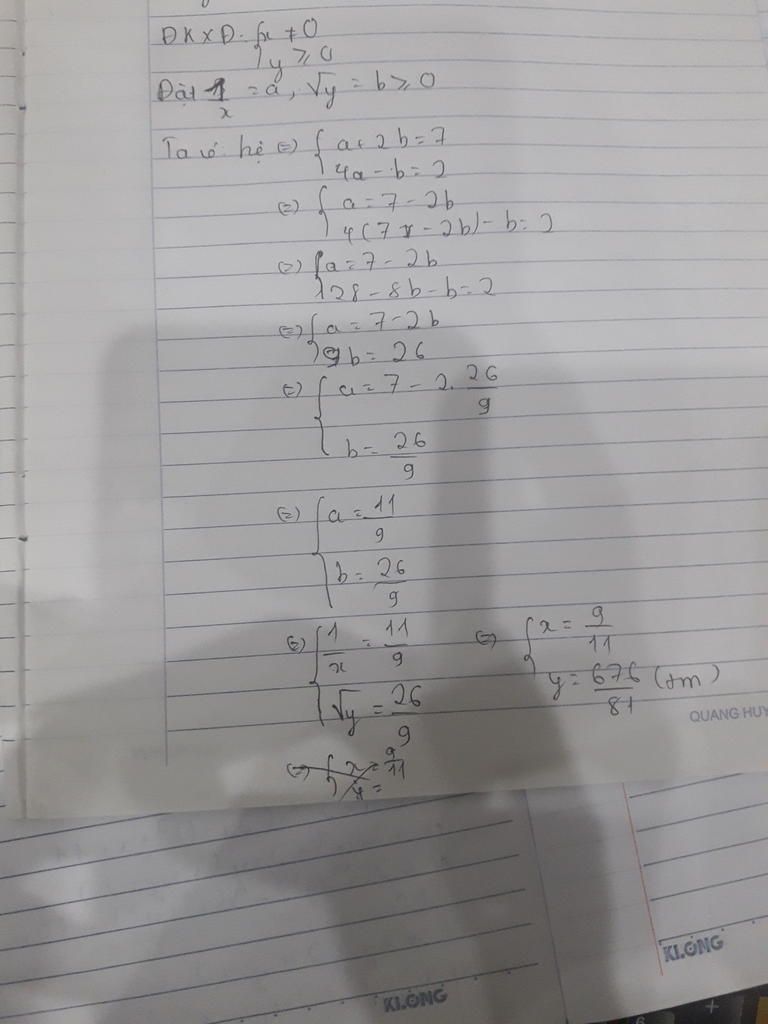 ĐKXĐ: {x ≠ 0
{y ≥ 0
Đặt 1/x = a, √y = b ≥ 0
Ta có hệ (=) { a + 2b = 7
4a - b = 2
(=) { a = 7 - 2b
4(7 - 2b) - b = 2
(=) { a = 7 - 2b
28 - 8b - b = 2
(=) { a = 7 - 2b
9b = 26
(=) { a = 7 - 2. 26/9
b = 26/9
(=) { a = 11/9
b = 26/9
(=) { 1/x = 11/9 (=) { x = 9/11
√y = 26/9 y = 676/81 (tm)
QUANG HUY
(=) { x = 9/11
y =
KLONG
KLONG